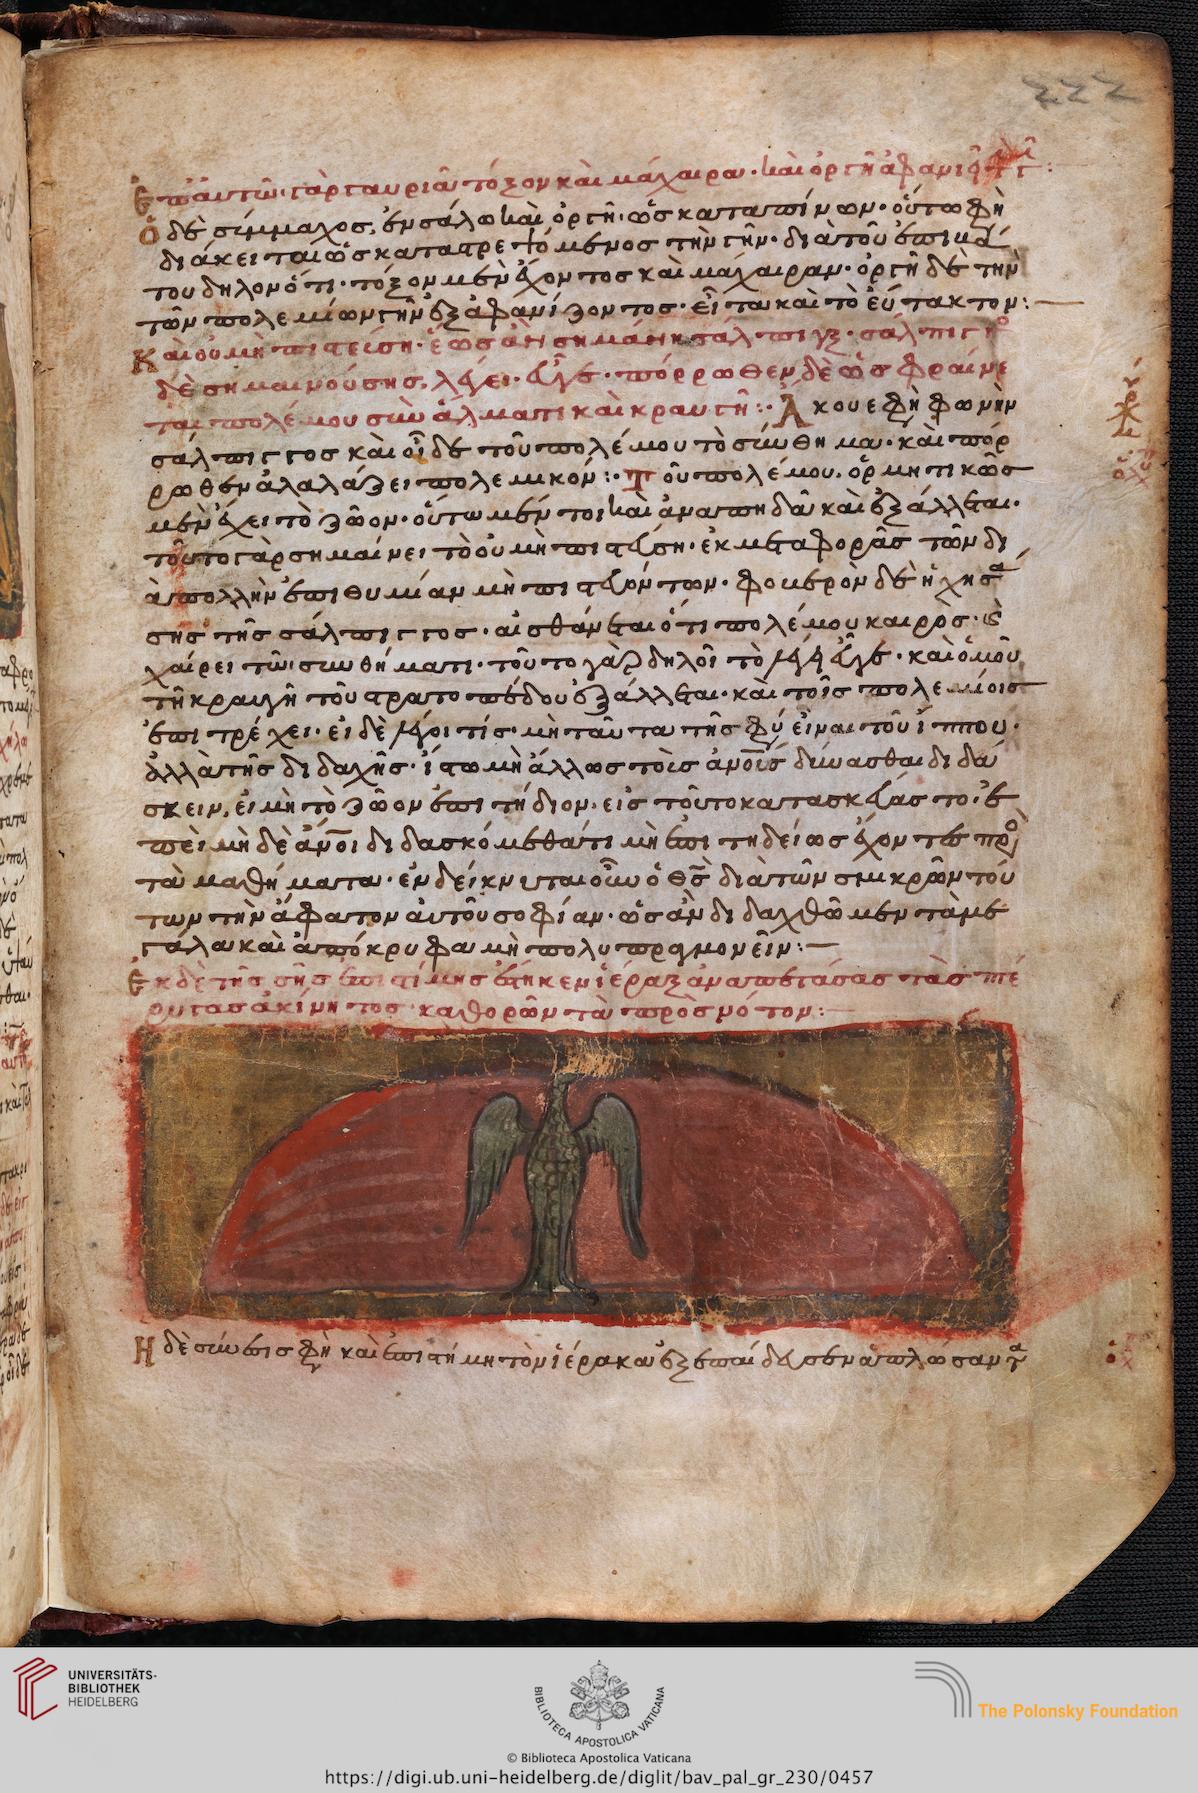 222
Ἐπ' αὐτῶ γαυριᾶ τόξον καὶ μάχαιρα· καὶ ὀργῆ ἀφανιεῖ τ γ:
Ὁ δὲ σύμμαχος, ἐν σάλω καὶ ὀργῆ· ὡς καταπίνων· οὕτω φη
διάκειται ὡς καταστρεφόμενος τὴν γῆν· διὰ τοῦ ἐπικα
του δηλονότι· τόξον μὲν ἔχοντος καὶ μάχαιραν· ὀργῆ δὲ τὴν
τῶν πολεμίων γῆν ἐξαφανίζοντος· εἶτα καὶ τὸ εὔτακτον:
Καὶ οὐ μὴ πιστεύση· ἕως ἂν σημάνη σάλπιγξ· σάλπιγγο
δὲ σημαινούσης, λέγει· εὖγε· πόρρωθεν δὲ ὀσφραίνε
ται πολέμου σὺν ἅλματι καὶ κραυγῆ: Ἀκουε φὴ φωνὴν
σάλπιγγος καὶ οἶδε τοῦ πολέμου τὸ σύνθημα· καὶ πόρ
ρωθεν ἀλαλάζει πολεμικόν: Τοῦ πολέμου. ὁρμητικῶς
μὲν ἔχει τὸ ζῶον· οὕτω μέντοι καὶ ἀναπηδᾶ καὶ ἐξάλλεται·
τοῦτο γὰρ σημαίνει τὸ οὐ μὴ πιστεύση· ἐκ μεταφορᾶς τῶν δι
ὰ πολλὴν ἐπιθυμίαν μὴ πιστευόντων· φοβερὸν δὲ ἠχησα
σης τῆς σάλπιγγος· αἰσθάνεται ὅτι πολέμου καιρὸς· καὶ
χαίρει τῶ συνθήματι· τοῦτο γὰρ δηλοῖ τὸ λέγει εὖγε· καὶ ὁμοῦ
τῆ κραυγῆ τοῦ στρατοπέδου ἐξάλλεται· καὶ τοῖς πολεμίοις
ἐπιτρέχει· εἰ δὲ λέγοι τίς· μὴ ταῦτα τῆς φύ εἶναι τοῦ ἵππου·
ἀλλὰ τῆς διδαχῆς· ἴστω μὴ ἄλλως τοῖς ἀνοις δύνασθαι διδά
σκειν, εἰ μὴ τὸ ζῶον ἐπιτήδιον· εἰς τοῦτο κατασκευαστο· ἐ
πεὶ μὴ δὲ ἀνοι διδασκόμεθά τι μὴ ἐπιτηδείως ἔχοντες προ
τὰ μαθήματα· ἐνδείκνυται οὖν ὁ θς διὰ τῶν σμικρῶν τού
των τὴν ἄφατον αὐτοῦ σοφίαν· ὡς ἂν διδαχθῶμεν τὰ με
γάλα καὶ ἀπόκρυφα μὴ πολυπραγμονεῖν:
Ἐκ δὲ τῆς σῆς ἐπιστήμης ἕστηκεν ἱέραξ ἀναπετάσας τὰς πτέ
ρυγας ἀκίνητος καθορῶν τὰ πρὸς νότον:
Ἡ δὲ σύνεσις φη καὶ ἐπιστήμη τὸν ἱέρακα ἐξεπαίδευσεν ἁπλώσαντα
UNIVERSITÄTS-
BIBLIOTHEK
HEIDELBERG
BIBLIOTECA APOSTOLICA VATICANA
The Polonsky Foundation
© Biblioteca Apostolica Vaticana
https://digi.ub.uni-heidelberg.de/diglit/bav_pal_gr_230/0457